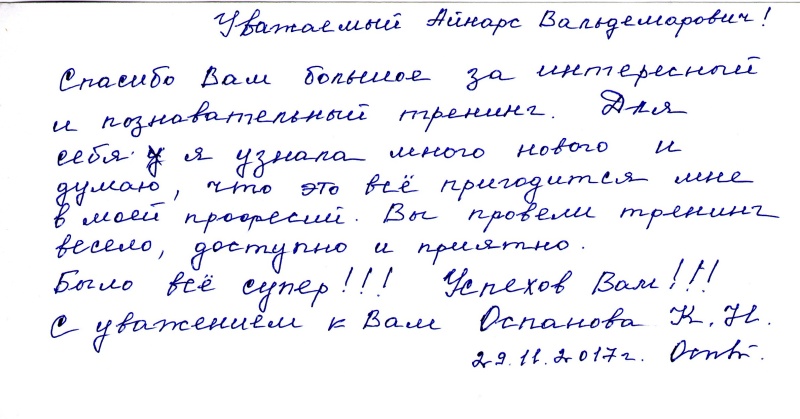 Уважаемый Айнарс Вальдемарович!
Спасибо Вам большое за интересный
и познавательный тренинг. Для
себя я узнала много нового и
думаю, что это всё пригодится мне
в моей профессий. Вы провели тренинг
весело, доступно и приятно.
Было всё супер!!! Успехов Вам!!!
С уважением к Вам Оспанова К. Н.
29.11.2017г.